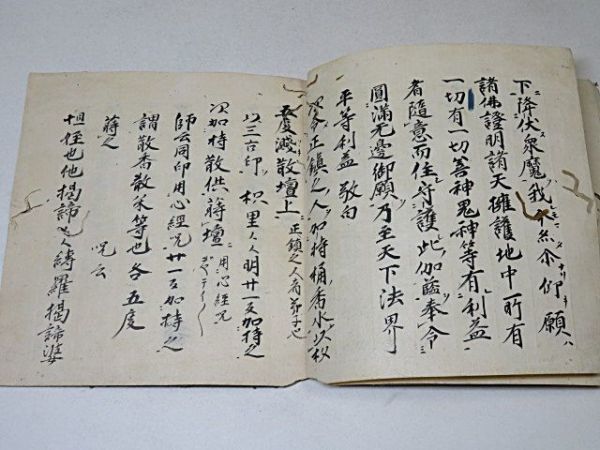 下降伏衆魔我今系命仰願ハ
諸佛證明諸天擁護地中所有
一切有一切善神鬼神等有利益
者隨意而住守護此伽藍奉令
圓滿无邊御願乃至天下法界
平等利益 敬白
次令正鎮之人加持桶香水以杖
五度灑散壇上 正鎮之人者弟子也
以三古印 枳里〻〻明廿一反加持之
次加持散供蒔壇 用心經咒
師云同印用心經咒廿一反加持之
謂散香散米等也各五度
蒔之 咒云
怛姪也他揭諦〻〻縛羅揭諦婆